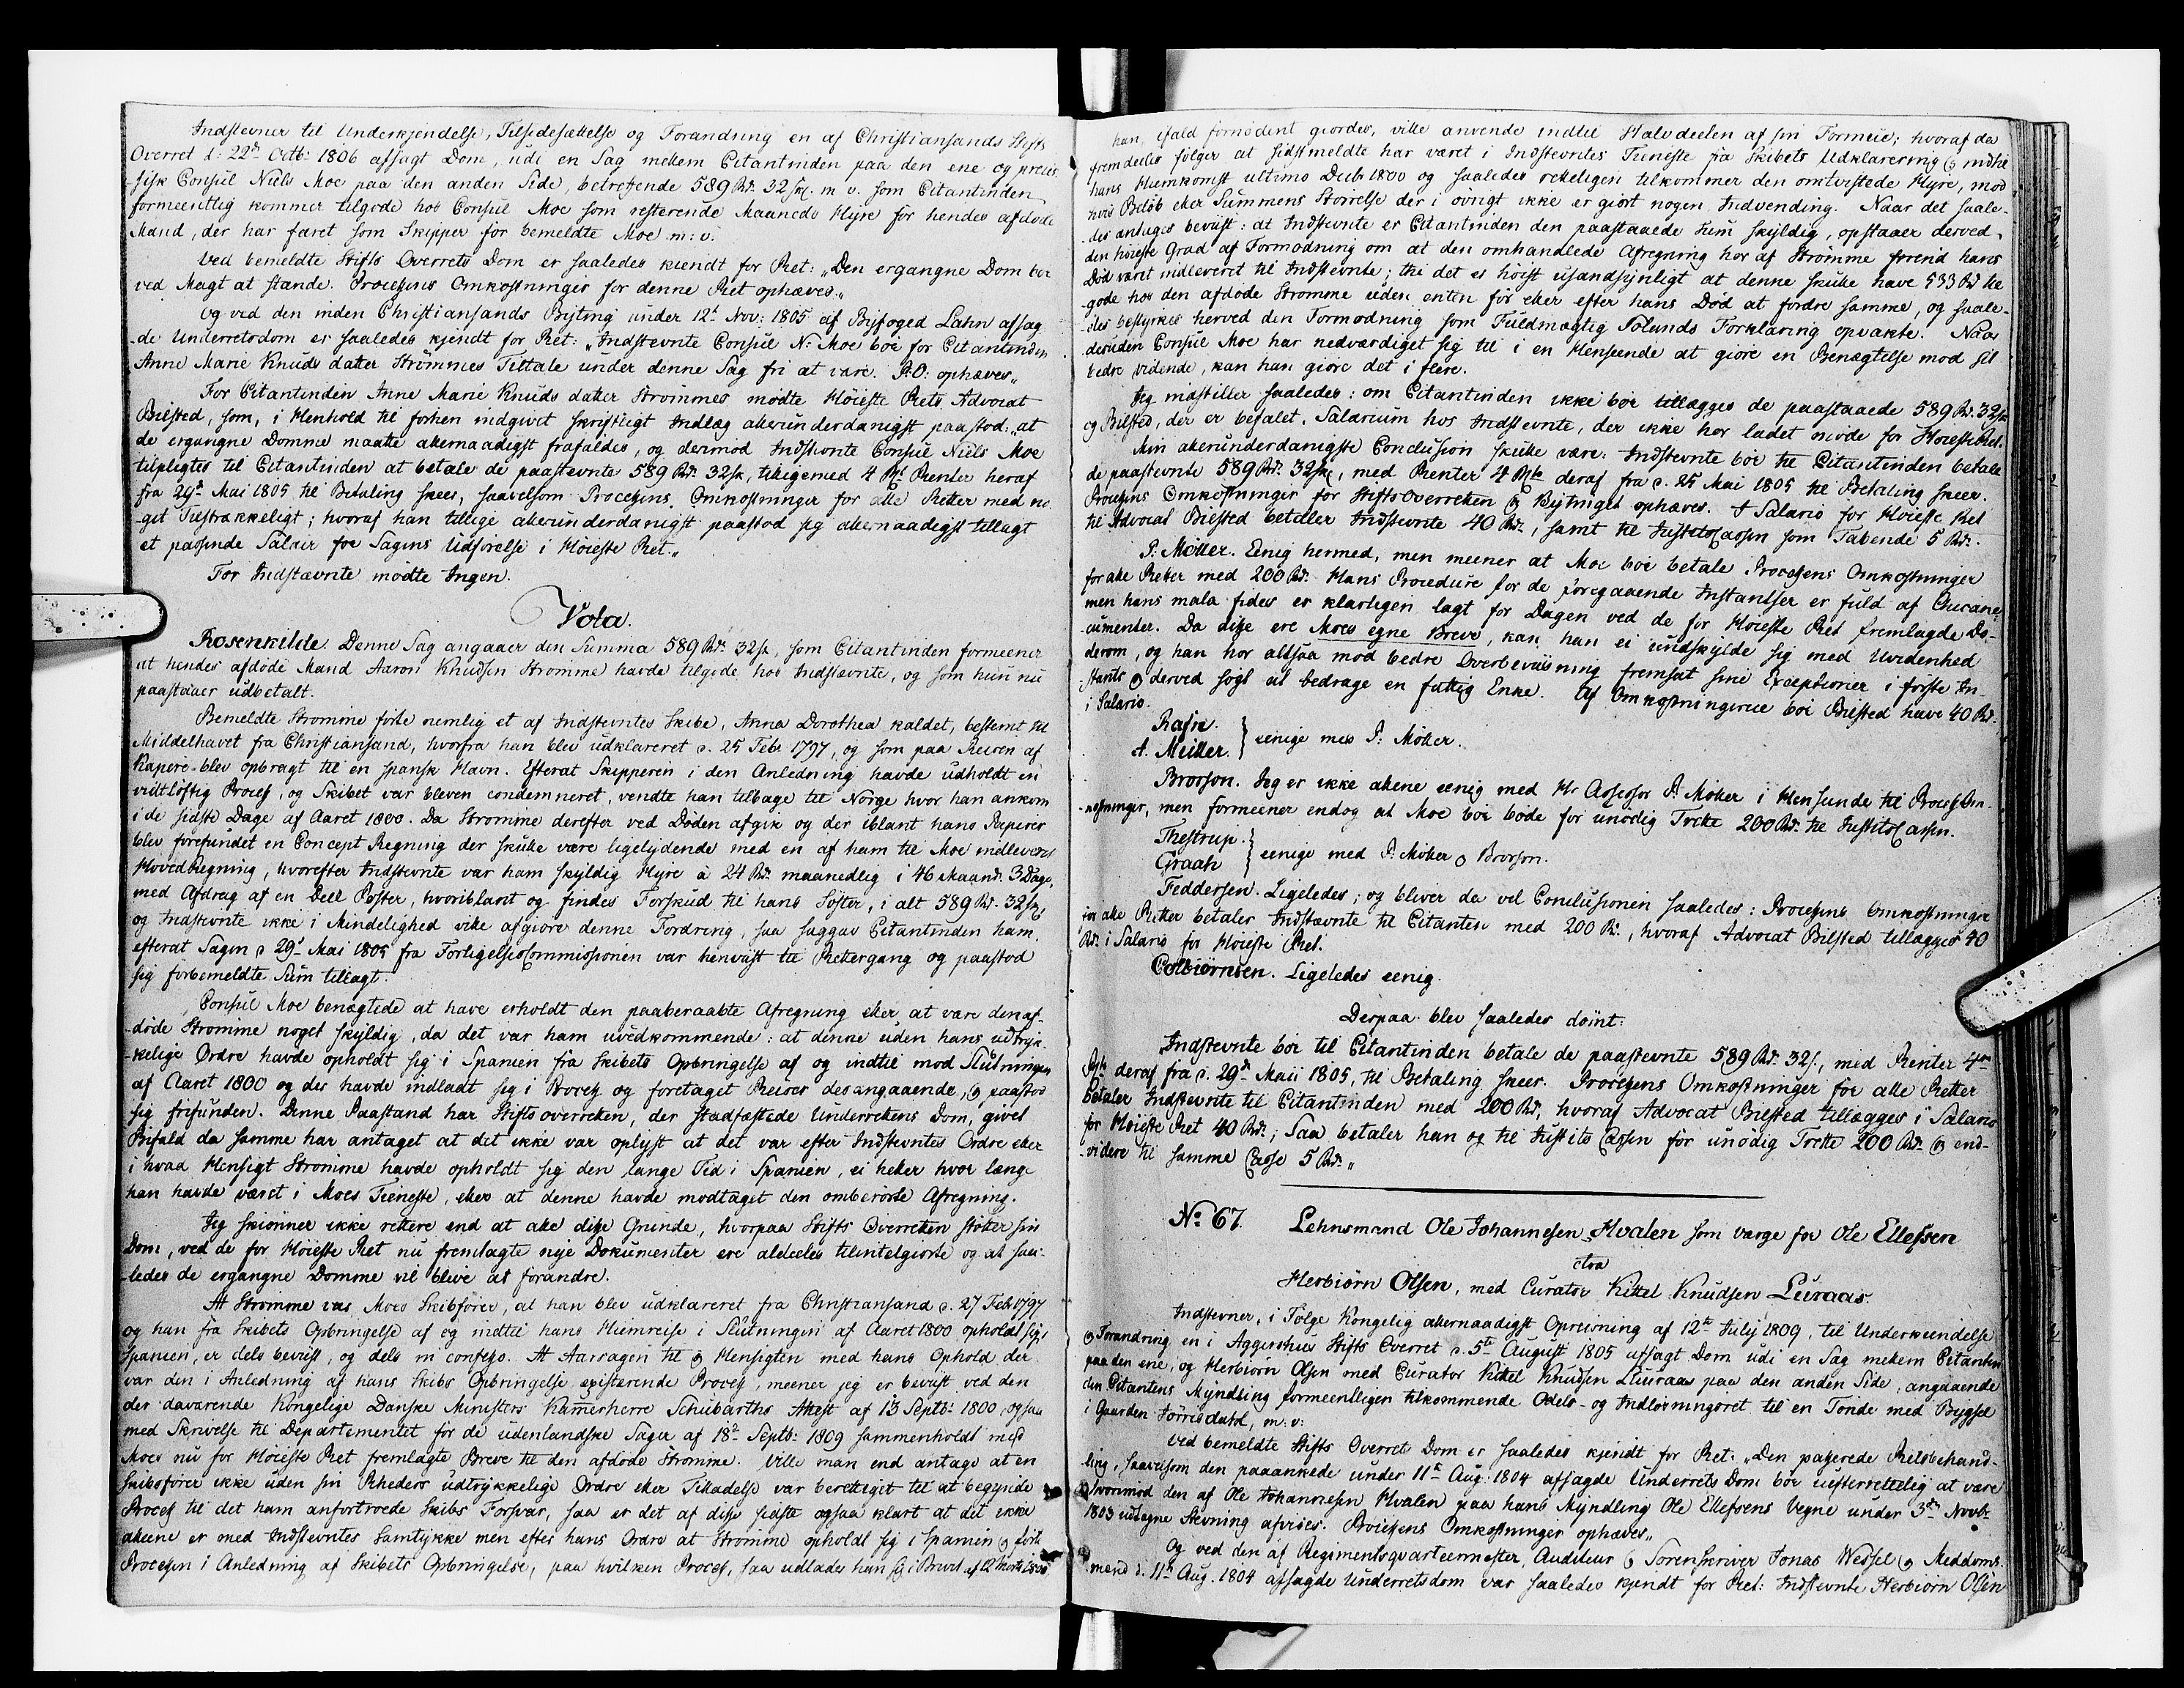 Indstevner til Underkjendelse, Tilsidesættelse og Forandring en af Christiansands Stifts
Overret d: 22de Octb: 1806 afsagt Dom, udi en Sag mellem Citantinden paa den ene og preus
-sisk Consul Niels Moe paa den anden Side, betreffende 589 Rd. 32 sk: m v. som Citantinden
formeentlig kommer tilgode hos Consul Moe som resterende Maaneds Hyre for hendes afdøde
Mand, der har faret som Skipper for bemeldte Moe m: v:
Ved bemeldte Stifts Overrets Dom er saaledes kiendt for Ret: „Den ergangne Dom bør
ved Magt at stande. Processens Omkostninger for denne Ret ophæves.„
Og ved den inden Christiansands Byting under 12t Nov: 1805 af Byfoged Lahn afsag
-de Underretsdom er saaledes kjendt for Ret: „Indstevnte Consul N. Moe bør for Citantinden
Anne Marie Knuds datter Strømmes Tiltale under denne Sag fri at være. P.O: ophæves„
For Citantinden Anne Marie Knuds datter Strømmes mødte Høieste Rets Advocat
Bilsted, som, i Henhold til forhen indgivet skriftligt Indlæg allerunderdanigst paastod: „at
de ergangne Domme maatte allernaadigst frafaldes, og dermod Indstevnte Consul Niels Moe
tilpligtes til Citantinden at betale de paastevnte 589 Rd. 32 sk, tilligemed 4 Pct Renter heraf
fra 29de Mai 1805 til Betaling skeer, saavelsom Processens Omkostninger for alle Retter med no
-get Tilstrækkeligt; hvoraf han tillige allerunderdanigst paastod sig allernaadigst tillagt
et passende Salair for Sagens Udførelse i Høieste Ret.„
For Indstævnte mødte Ingen.
Vota.
Rosenkilde. Denne Sag angaaer den Summa 589 Rd. 32 sk, som Citantinden formeener
at hendes afdøde Mand Aaron Knudsen Strømme havde tilgode hos Indstævnte, og som hun nu
paastaaer udbetalt.
Bemeldte Strømme førte nemlig et af Indstevntes Skibe, Anna Dorothea kaldet, bestemt til
Middelhavet fra Christiansand, hvorfra han blev udklareret d. 25 Febr 1797, og som paa Reisen af
Kapere blev opbragt til en spansk Havn. Efterat Skipperen i den Anledning havde udholdt en
vidtløftig Proces, og Skibet var bleven condemneret, vendte han tilbage til Norge hvor han ankom
i de sidste Dage af Aaret 1800. Da Strømme derefter ved Døden afgik og der iblant hans Papirer
blev forefundet en Concept Regning der skulle være ligelydende med en af ham til Moe indleveret
HovedRegning, hvorefter Indstevnte var ham skyldig Hyre à 24 Rd. maanedlig i 46 Maand. 3 Dage,
med Afdrag af en Deel Poster, hvoriblant og findes Forskud til hans Søster, i alt 589 Rd. 32 sk,
og Indstevnte ikke i Mindelighed ville afgiøre denne Fordring, saa saggav Citantinden ham,
efterat Sagen d 29d Mai 1805 fra ForligelsesCommissionen var henviist til Rettergang og paastod
sig forbemeldte Sum tillagt.
Consul Moe benægtede at have erholdt den paaberaabte Afregning eller at være den af-
-døde Strømme noget skyldig, da det var ham uvedkommende: at denne uden hans udtryk-
-kelige Ordre havde opholdt sig i Spanien fra Skibets Opbringelse af og indtil mod Slutningen
af Aaret 1800 og der havde indladt sig i Proces og foretaget Reiser desangaaende, og paastod
sig frifunden. Denne Paastand har Stifts overretten, der stadfæstede Underrettens Dom, givet
Bifald da samme har antaget at det ikke var oplyst at det var efter Indstevntes Ordre eller
i hvad Hensigt Strømme havde opholdt sig den lange Tid i Spanien, ei heller hvor længe
han havde været i Moes Tieneste, eller at denne havde modtaget den omberørte Afregning.
Jeg skiønner ikke rettere end at alle disse Grunde, hvorpaa Stifts Overretten støtter sin
Dom, ved de for Høieste Ret nu fremlagte nye Dokumenter ere aldeeles tilintetgiorte og at saa-
-ledes de ergangne Domme vil blive at forandre.
At Strømme var Moes Skibfører, at han blev udklareret fra Christiansand d. 27 Feb 1797
og han fra Skibets Opbringelse af og indtil hans Hiemreise i Slutningen af Aaret 1800 opholdt sig i
Spanien, er dels beviist, og dels in confesso. At Aarsagen til og Hensigten med hans Ophold der
var den i Anledning af hans Skibs Opbringelse existerende Proces, meener jeg er beviist ved den
der daværende Kongelige Danske Ministers Kammerherre Schubarths Attest af 13 Septb: 1800, og saa
med Skrivelse til Departementet for de udenlandske Sager af 18d Septb: 1809 sammenholdt med
Moes nu for Høieste Ret fremlagte Breve til den afdøde Strømme. Ville man end antage at en
Skibsfører ikke uden sin Rheders udtrykkelige Ordre eller Tilladelse var berettiget til at begynde
Proces til det ham anfortroede Skibs Forsvar, saa er det af disse sidste ogsaa klart at det ikke
alleene er med Indstevntes Samtykke men efter hans Ordre at Strømme opholdt sig i Spanien og førte
Processen i Anledning af Skibets Opbringelse, paa hvilken Proces, saa udlader han sig i Brevet af 12 Marts 1800
han, ifald fornødent giordes, ville anvende indtil Halvdeelen af sin Formue; hvoraf da
fremdeeles følger at sidstmeldte har været i Indstevntes Tieneste fra Skibets Udklarering og indtil
hans Hiemkomst ultimo Decb 1800 og saaledes retteligen tilkommer den omtvistede Hyre, mod
hvis Beløb eller Summens Størrelse der i øvrigt ikke er giort nogen Indvending. Naar det saale-
-des antages beviist: at Indstevnte er Citantinden den paastaaede Sum skyldig, opstaaer derved
den høieste Grad af Formodning om at den omhandlede Afregning har af Strømme førend hans
Død været indleveret til Indstevnte; thi det er høist usandsynligt at denne skulle have 533 Rd til
gode hos den afdøde Strømme uden enten før eller efter hans Død at fordre samme, og saale-
-des bestyrkes herved den Formodning som Fuldmægtig Tolunds Forklaring opvakte. Naar
desuden Consul Moe har nedværdiget sig til i en Henseende at giøre en Benægtelse mod sit
bedre vidende, kan han giøre det i flere.
Jeg indstiller saaledes: om Citantinden ikke bør tillægges de paastaaede 589 Rd. 32 sk
og Bilsted, der er befalet, Salarium hos Indstevnte, der ikke har ladet møde for HøiesteRet.
Min allerunderdanigste Conclusion skulle være: Indstevnte bør til Citantinden betale
de paastevnte 589 Rd. 32 sk, med Renter 4 Pcto deraf fra d. 25 Mai 1805 til Betaling skeer.
Processens Omkostninger for StiftsOverretten og Bytinget ophæves. I Salario for Høieste Ret
til Advocat Bilsted betaler Indstevnte 40 Rd., samt til JustitsCassen som Tabende 5 Rd.
P. Møller. Eenig hermed, men meener at Moe bør betale Processens Omkostninger
for alle Retter med 200 Rd. Hans Procedure for de foregaaende Instantser er fuld af Chicane
men hans mala fides er klarligen lagt for Dagen ved de for Høieste Ret fremlagde Do-
-cumenter. Da disse ere Moes egne Breve, kan han ei undskylde sig med Uvidenhed
derom, og han har altsaa mod bedre Overbeviisning fremsat sine Exceptioner i første In-
-stants og derved søgt at bedrage en fattig Enke. Af Omkostningerne bør Bilsted have 40 Rd.
i Salario.
Rafn.
A. Müller. } eenige med P: Møller.
Brorson. Jeg er ikke allene eenig med Hr Assessor P. Møller i Henseende til Proces Om-
-kostninger, men formeener endog at Moe bør bøde for unødig Trette 200 Rd. til JustitsCassen.
Thestrup.
Graah } eenige med P. Møller og Brorson.
Feddersen. Ligeledes; og bliver da vel Conclusionen saaledes: Processens Omkostninger
for alle Retter betaler Indstævnte til Citanten med 200 Rd., hvoraf Advocat Bilsted tillægges 40
Rd. i Salario for Høieste Ret.
Colbiørnsen. Ligeledes eenig.
Derpaa blev saaledes dømt:
Indstevnte bør til Citantinden betale de paastevnte 589 Rd. 32 s., med Renter 4re
Pcto deraf fra d. 29de Maii 1805, til Betaling skeer. Processens Omkostninger for alle Retter
betaler Indstevnte til Citantinden med 200 Rd, hvoraf Advocat Bilsted tillægges i Salario
for Høieste Ret 40 Rd.; Saa betaler han og til Justits Cassen for unødig Trette 200 Rd. og end-
-videre til samme Casse 5 Rd.„
No: 67. Lehnsmand Ole Johannesen Hvalen som værge for Ole Ellefsen
ctra
Herbiørn Olsen, med Curator Kittel Knudsen Luraas.
Indstevner, i Følge Kongelig allernaadigst Opreisning af 12te Julij 1809, til Underkiendelse
og Forandring en i Aggershuus Stifts Overret d. 5te August 1805 afsagt Dom udi en Sag mellem Citanten
paa den ene, og Herbiørn Olsen med Curator Kittel Knudsen Luuraas paa den anden Side, angaaende
den Citantens Myndling formeentligen tilkommende Odels- og Indløsningsret til en Tønde med Bygsel
i Gaarden Torrisdahl, m: v:
Ved bemeldte Stifts Overret Dom er saaledes kjendt for Ret: „Den passerede Retsbehand-
-ling, saavelsom den paaankede under 11te Aug: 1804 afsagde Underrets Dom bør uefterrettelig at være
og hvorimod den af Ole Johannesen Hvalen paa hans Myndling Ole Ellefsens Vegne under 3die Novb:
1803 udtagne Stevning afvises. Processens Omkostninger ophæves„
Og ved den af Regimentsqvarteermester, Auditeur og Sorenskriver Jonas Wessel og Meddoms-
mænd d. 11te Aug. 1804 afsagde Underretsdom var saaledes kjendt for Ret: Indstevnte Herbiørn Olsen